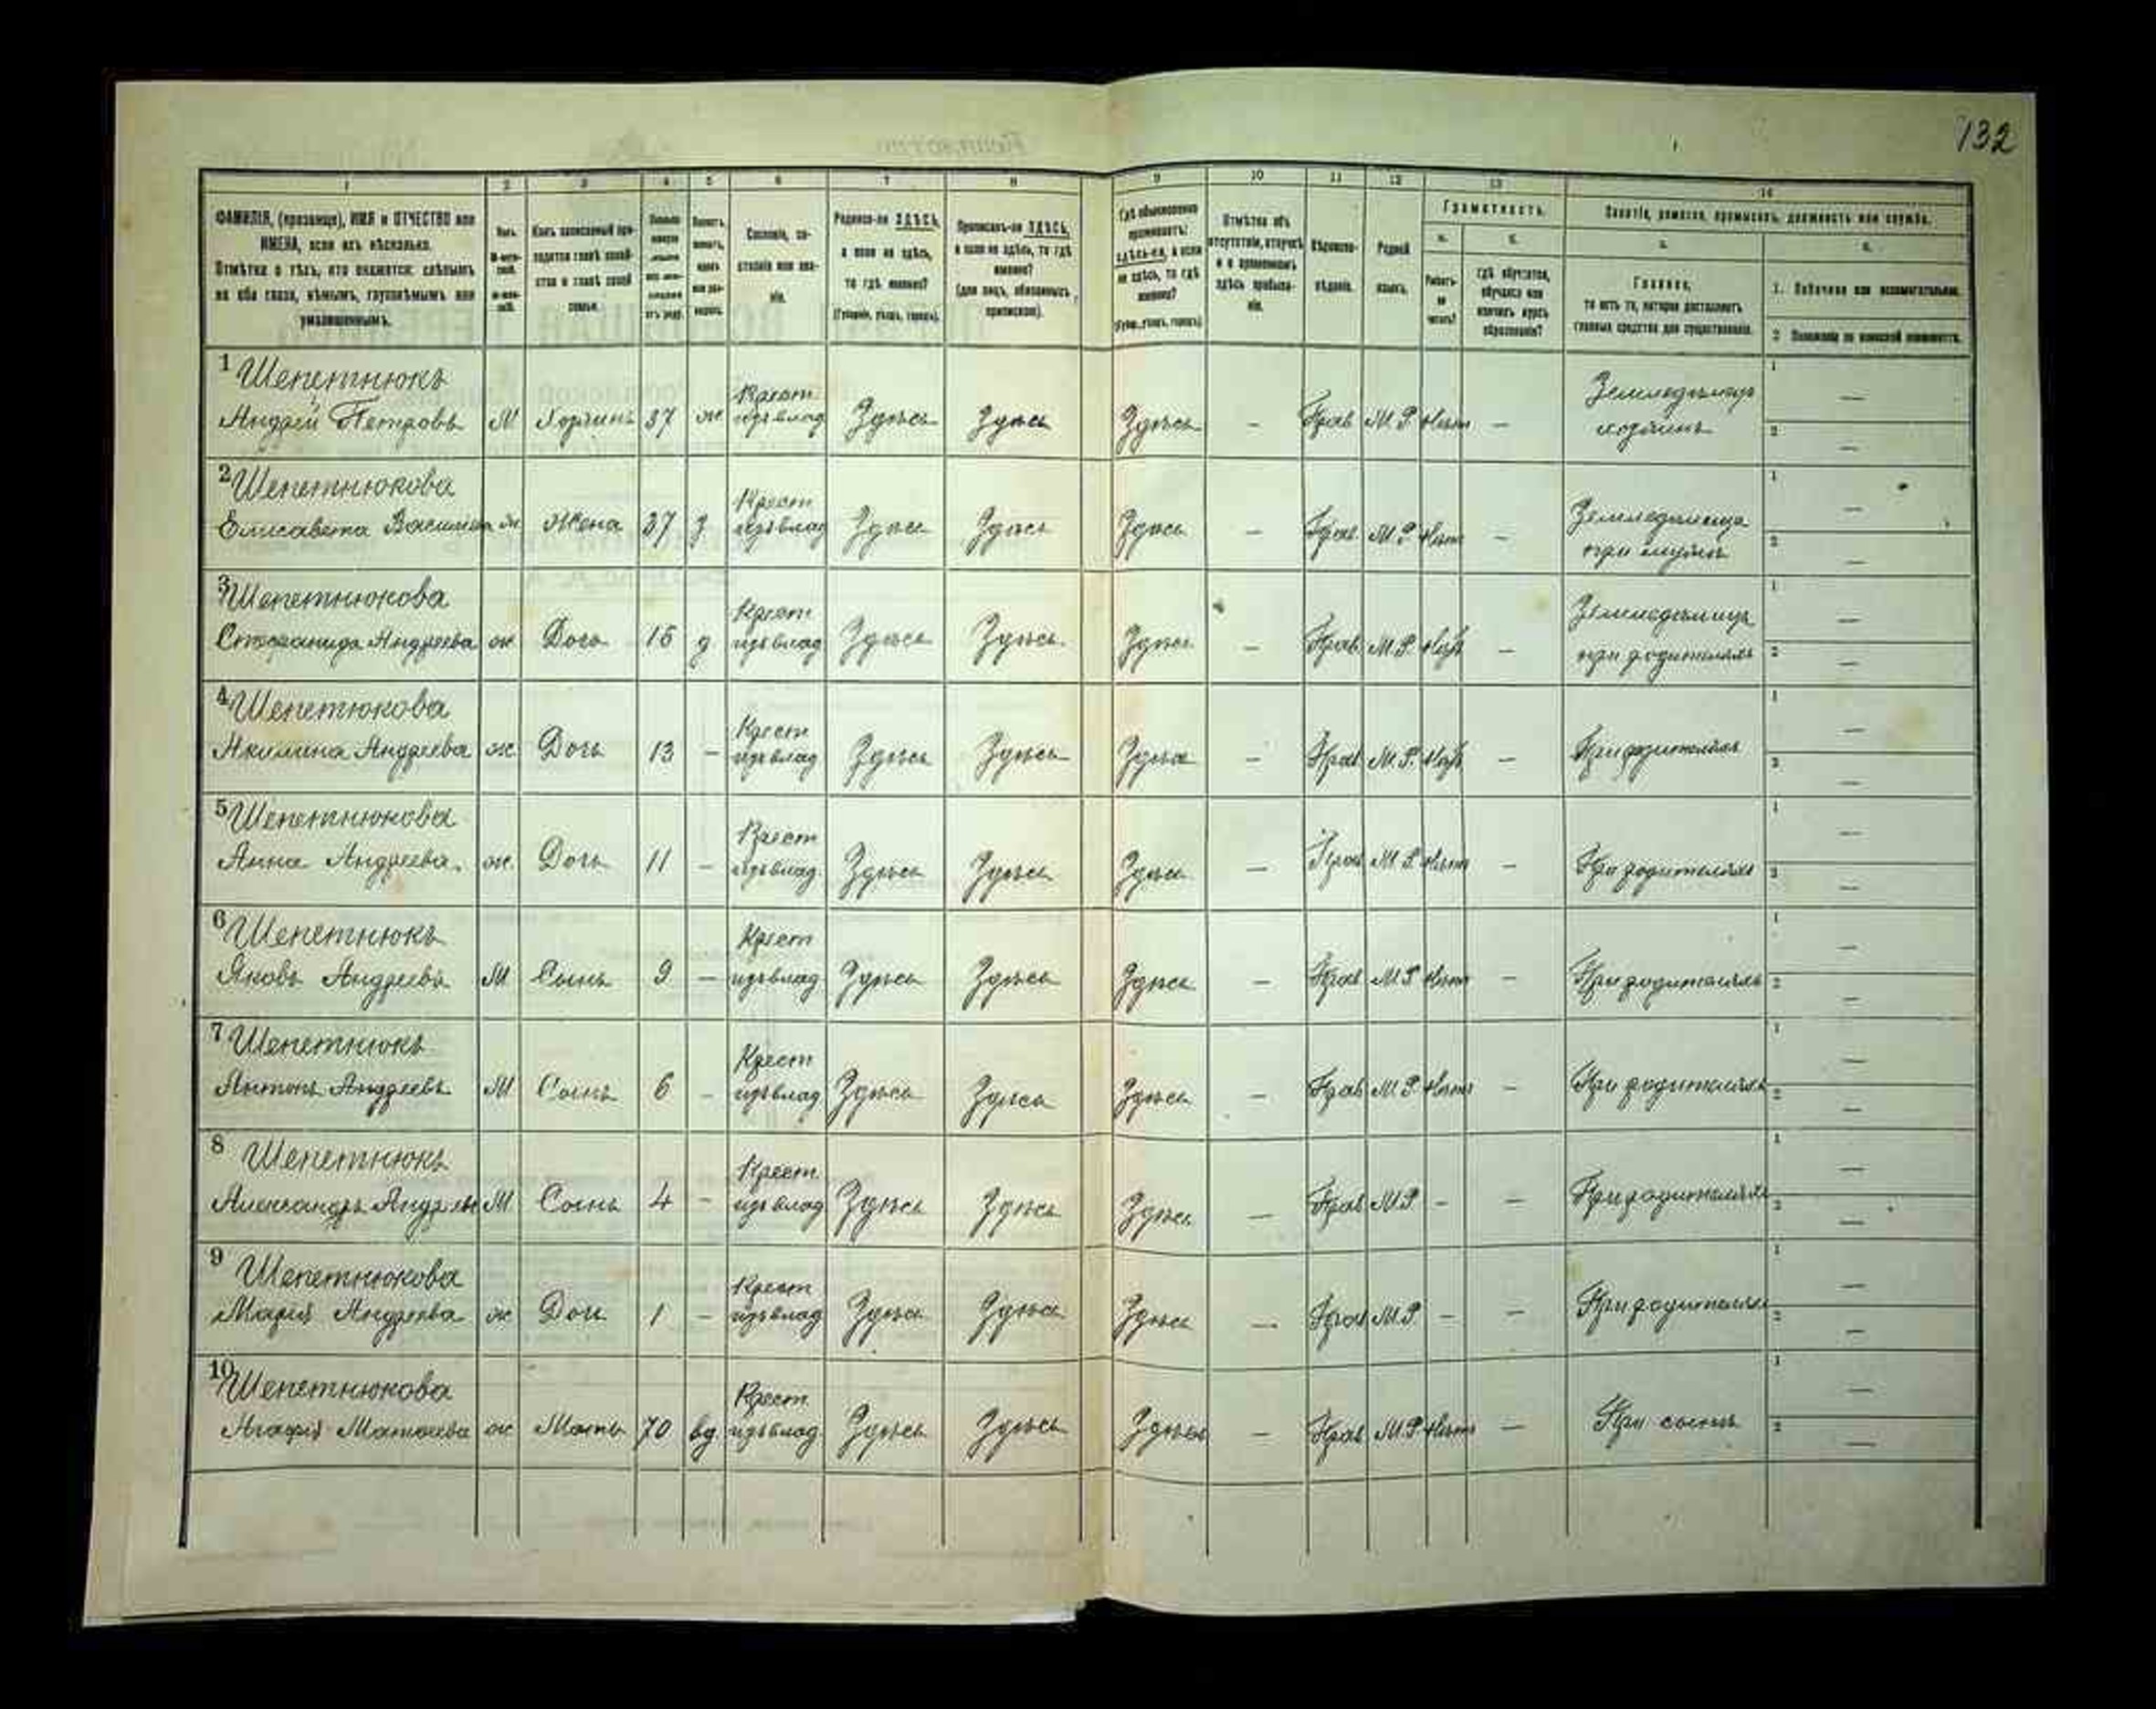 132
1 2 3 4 5 6 7 8 9 10 11 12 13 14
ФАМИЛІЯ, (прозвище), ИМЯ и ОТЧЕСТВО или
ИМЕНА, если ихъ нѣсколько.
Отмѣтка о тѣхъ, кто окажется: слѣпымъ
на оба глаза, нѣмымъ, глухонѣмымъ или
умалишеннымъ.
Полъ.
Какъ записанный при-
ходится главѣ хозяй-
ства и главѣ своей
семьи.
Сословіе, со-
стояніе или зва-
ніе.
Родился-ли ЗДѢСЬ,
а если не здѣсь,
то гдѣ именно?
(Губернія, уѣздъ, городъ).
Приписанъ-ли ЗДѢСЬ,
а если не здѣсь, то гдѣ
именно?
(для лицъ, обязанныхъ
припискою).
Гдѣ обыкновенно
проживаетъ:
здѣсь-ли, а если
не здѣсь, то гдѣ
именно?
(Губер., уѣздъ, городъ)
Отмѣтка объ
отсутствіи, отлучкѣ
и о временномъ
здѣсь пребыва-
ніи.
Вѣроиспо-
вѣданіе.
Родной
языкъ.
Грамотность.
а. б.
Умѣетъ-
ли
читать?
гдѣ обучается,
обучался или
кончилъ курсъ
образованія?
Занятіе, ремесло, промыселъ, должность или служба.
а. б.
Главное,
то есть то, которое доставляетъ
главныя средства для существованія.
1. Побочное или вспомогательное.
2. Положеніе по воинской повинности.
1 Шепетнюкъ Крест Земледѣлецъ 1 —
Андрей Петровъ М Хозяинъ 37 ж изъ влад Здѣсь Здѣсь Здѣсь — Прав М.Р. Нѣтъ — хозяинъ 2 —
2 Шепетнюкова Крест Земледѣлица 1 —
Елисавета Васильева ж Жена 37 з изъ влад Здѣсь Здѣсь Здѣсь — Прав М.Р. Нѣтъ — при мужѣ 2 —
3 Шепетнюкова Крест 1 —
Стефанида Андреева ж Дочь д изъ влад Здѣсь Здѣсь Здѣсь — Прав М.Р. — при родителяхъ 2 —
4 Шепетюкова Крест 1 —
Акилина Андреева ж Дочь 13 — изъ влад Здѣсь Здѣсь Здѣсь — Прав М.Р. — При родителяхъ 2 —
5 Шепетнюкова Крест 1 —
Анна Андреева ж Дочь 11 — изъ влад Здѣсь Здѣсь Здѣсь — Прав М.Р. Нѣтъ — При родителяхъ 2 —
6 Шепетнюкъ Крест 1 —
Яковъ Андреевъ М Сынъ 9 — изъ влад Здѣсь Здѣсь Здѣсь — Прав М.Р. Нѣтъ — При родителяхъ 2 —
7 Шепетнюкъ Крест 1 —
Антонъ Андреевъ М Сынъ 6 — изъ влад Здѣсь Здѣсь Здѣсь — Прав М.Р. Нѣтъ — При родителяхъ 2 —
8 Шепетнюкъ Крест 1 —
Александръ Андреевъ М Сынъ 4 — изъ влад Здѣсь Здѣсь Здѣсь — Прав М.Р. — — При родителяхъ 2 —
9 Шепетнюкова Крест 1 —
Марія Андреева ж Дочь 1 — изъ влад Здѣсь Здѣсь Здѣсь — Прав М.Р. — — При родителяхъ 2 —
10 Шепетнюкова Крест 1 —
Агафія Матвѣева ж Мать 70 вд изъ влад Здѣсь Здѣсь Здѣсь — Прав М.Р. Нѣтъ — При сынѣ 2 —